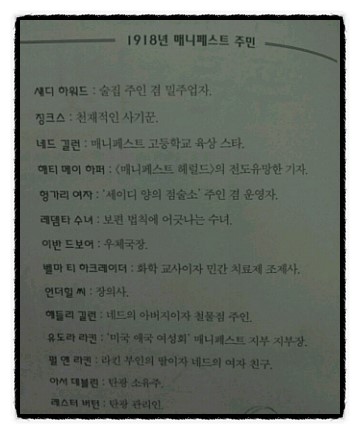 1918년 매니페스트 주민
섀디 하워드 : 술집 주인 겸 밀주업자.
징크스 : 천재적인 사기꾼.
네드 길런 : 매니페스트 고등학교 육상 스타.
해티 메이 하퍼 : 《매니페스트 헤럴드》의 전도유망한 기자.
헝가리 여자 : '세이디 양의 점술소' 주인 겸 운영자.
레뎀타 수녀 : 보편 법칙에 어긋나는 수녀.
이반 드보어 : 우체국장.
벨마 티 하크레이더 : 화학 교사이자 민간 치료제 조제사.
언더힐 씨 : 장의사.
해들리 길런 : 네드의 아버지이자 철물점 주인.
유도라 라킨 : '미국 애국 여성회' 매니페스트 지부 지부장.
펄 앤 라킨 : 라킨 부인의 딸이자 네드의 여자 친구.
아서 데블린 : 탄광 소유주.
레스터 버턴 : 탄광 관리인.